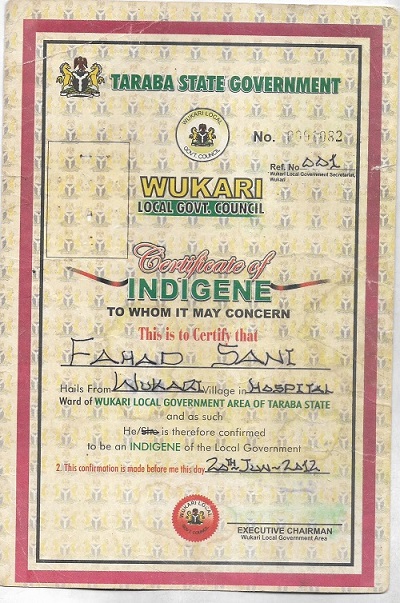 TARABA STATE GOVERNMENT
WUKARI LOCAL
GOVT. COUNCIL
No. 0001082
Ref. No 001
Wukari Local Government Secretariat,
Wukari
WUKARI
LOCAL GOVT. COUNCIL
Certificate of
INDIGENE
TO WHOM IT MAY CONCERN
This is to Certify that
FAHAD SANI
Hails From WUKARI Village in HOSPITAL
Ward of WUKARI LOCAL GOVERNMENT AREA OF TARABA STATE
and as such
He/She is therefore confirmed
to be an INDIGENE of the Local Government
2. This confirmation is made before me this day 20TH-JUN-2012
WUKARI LOCAL
EXECUTIVE CHAIRMAN
Wukari Local Government Area